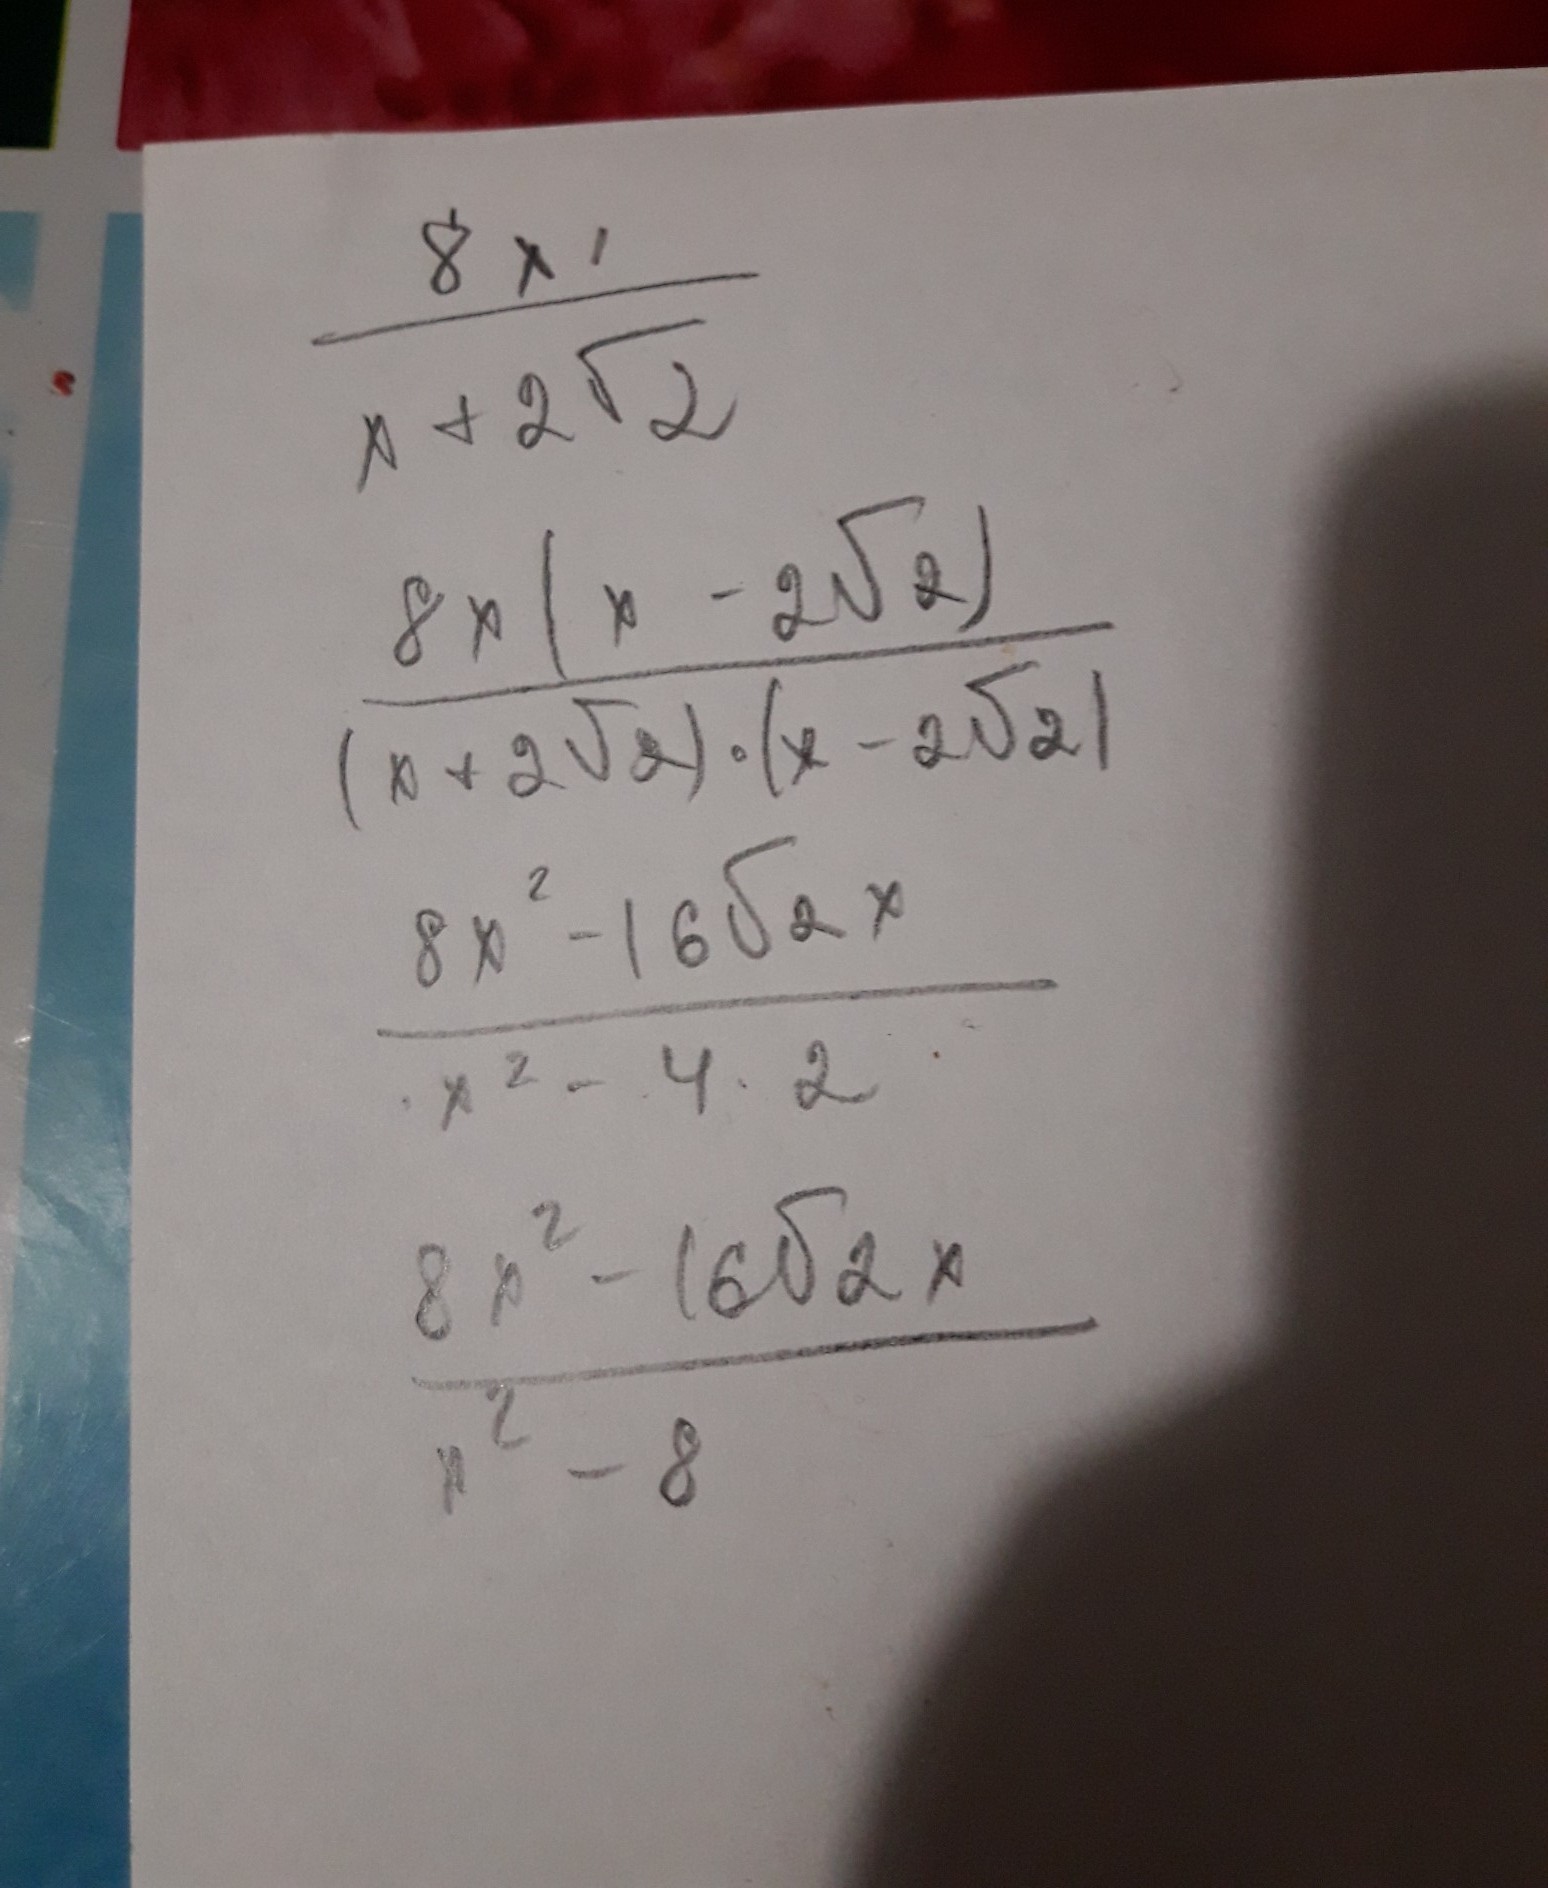 8x'
x+2√2
8x(x-2√2)
(x+2√2)·(x-2√2)
8x²-16√2x
x²-4·2
8x²-16√2x
x²-8